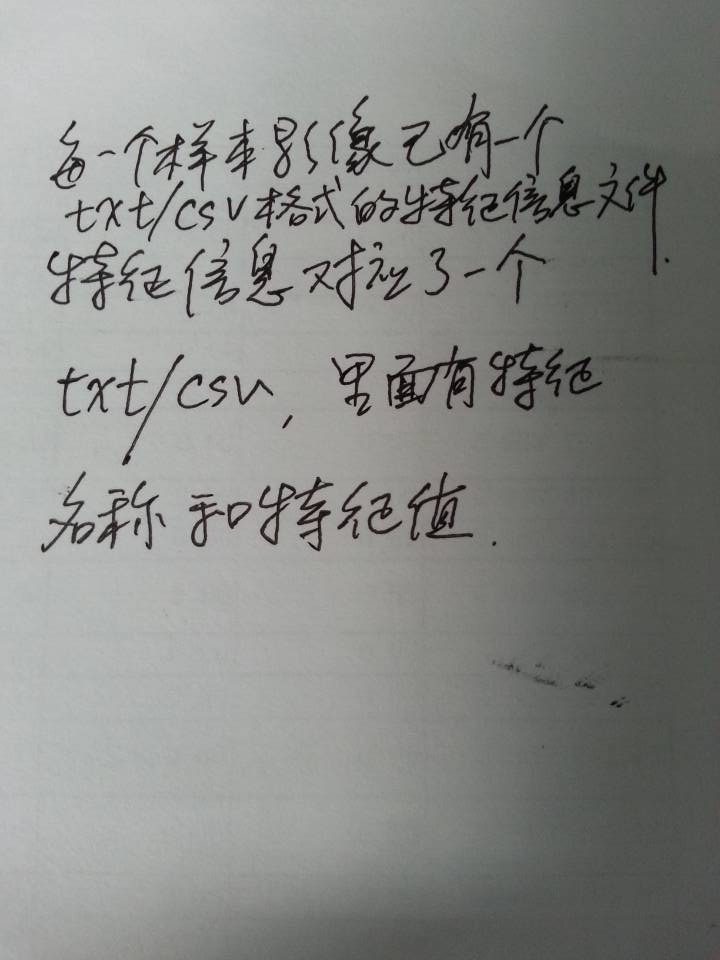 每一个样本影像已有一个
txt/csv格式的特征信息文件.
特征信息对应了一个
txt/csv, 里面有特征
名称和特征值.